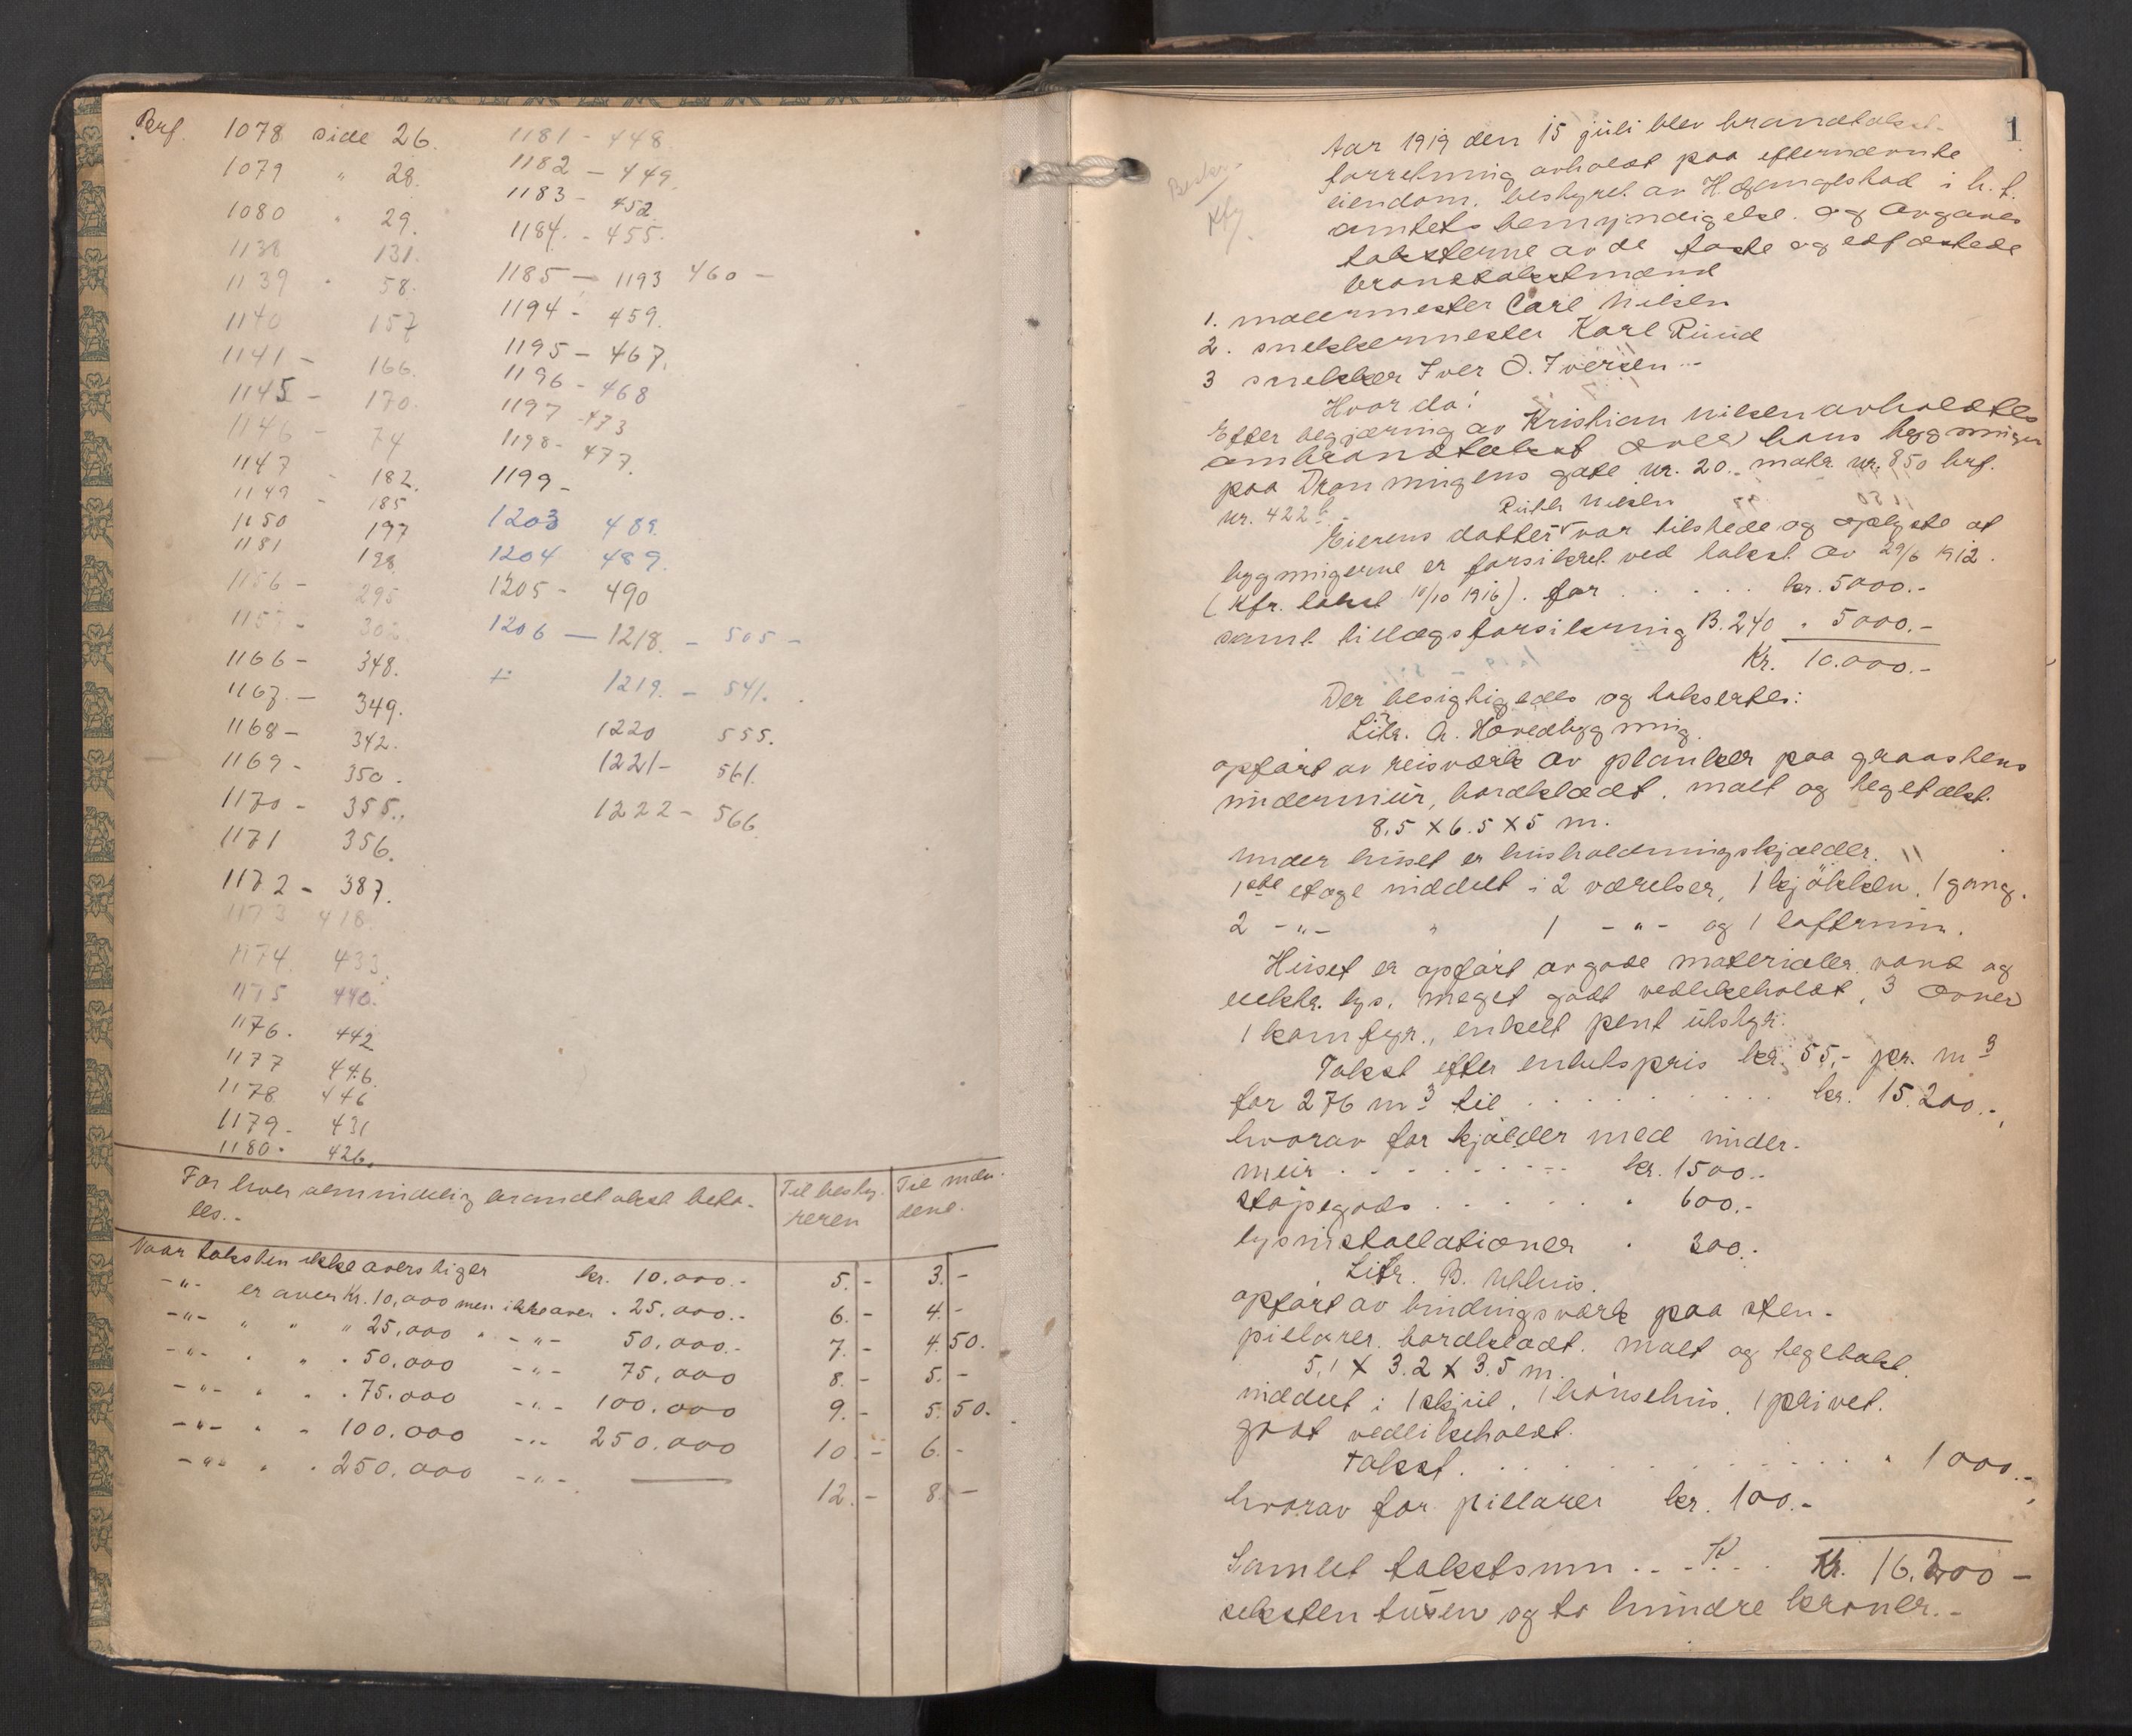 Brf. 1078 side 26.
1079 " 28.
1080 " 29.
1138 131.
1139 " 58.
1140 157
1141 - 166.
1145 - 170.
1146 - 74
1147 - 182.
1149 - 185
1150 197
1181 198
1156 - 295
1157 - 302
1166 - 348.
1167. - 349.
1168 - 342.
1169 - 350.
1170 - 355.
1171 356.
1172 - 387.
1173 418.
1174. 433.
1175 440.
1176. 442
1177 446.
1178 446
1179 - 431
1180 - 426.
1181 - 448.
1182 - 449.
1183 - 452
1184. - 455.
1185 — 1193 460 -
1194 - 459.
1195 - 467.
1196 - 468
1197 - 473
1198 - 477.
1199 -
1203 489.
1204 489.
1205 - 490
1206 — 1218. - 505 -
1219. - 541.
1220 555.
1221 - 561.
1222 - 566.
For hver almindelig brandtakst beta-
les.-
Til besty-
reren
Til mæn-
dene.
Naar taksten ikke overstiger kr. 10.000.- 5.- 3.-
-"- er over Kr. 10,000 men ikke over " 25.000.- 6.- 4.-
-"- " " " 25.000 " -"- 50.000.- 7.- 4.50.
-"- " " " 50.000 -"- 75.000 8.- 5.-
-"- " " " 75.000 -"- 100.000 9.- 5.50.
-"- " " 100.000 -"- 250.000 10.- 6.-
-"- " " 250.000 -"- — 12.- 8.-
1
Aar 1919 den 15 juli blev brandtakst-
forretning avholdt paa efternævnte
eiendom. bestyret av H. Gangstad i h. t.
amtets bemyndigelse. og avgaves
taksterne av de faste og edfæstede
brandtakstmænd
1. malermester Carl Nilsen
2. snekkermester Karl Ruud
3 snekker Iver O. Iversen -
Hvorda:
Efter begjæring av Kristian Nilsen avholdtes
ombrandtakst over hans bygninger
paa Dronningens gate nr. 20.- matr. nr. 850 brf.
nr. 422b.
Ruth Nilsen
Eierens datter var tilstede og oplyste at
bygningerne er forsikret ved takst av 29/6 1912.
(Kfr. takst 10/10 1916). for . . . . . kr. 5000.-
samt tillægsforsikring B. 240 " 5000.-
Kr. 10.000.-
Der besigtigedes og taksertes:
Litr. A. Hovedbygning.
opført av reisværk av planker paa graastens
undermur, bordklædt, malt og teglstækt.
8,5 X 6.5 X 5 m.
Under huset er husholdningskjælder.
1ste etage inddelt i 2 værelser, 1 kjøkken, 1 gang.
2 -"- " 1 -"- og 1 loftrum.
Huset er opført av gode materialer. vand og
elektr. lys. meget godt vedlikeholdt, 3 ovner
1 komfyr., enkelt pent utstyr.
Takst efter enhetspris kr. 55,- pr. m3
for 276 m3 til . . . . . . . . . . kr. 15.200.-
hvorav for kjælder med under-
mur . . . . . . . . kr. 1500.-
støpegods . . . . . . " 600.-
lysinstallationer . " 300.-
Litr. B. Uthus.
opført av bindingsværk paa sten-
pillarer. bordklædt. malt og teglstækt.
5,1 X 3.2 X 3.5 m.
inddelt i 1 skjul, 1 hønsehus, 1 privet.
godt vedlikeholdt.
Takst. . . . . . . . . . . . . . " 1000.-
hvorav for pillarer kr. 100.-
Samlet takstsum . . . . Kr. 16.200 -
seksten tusen og to hundre kroner.-